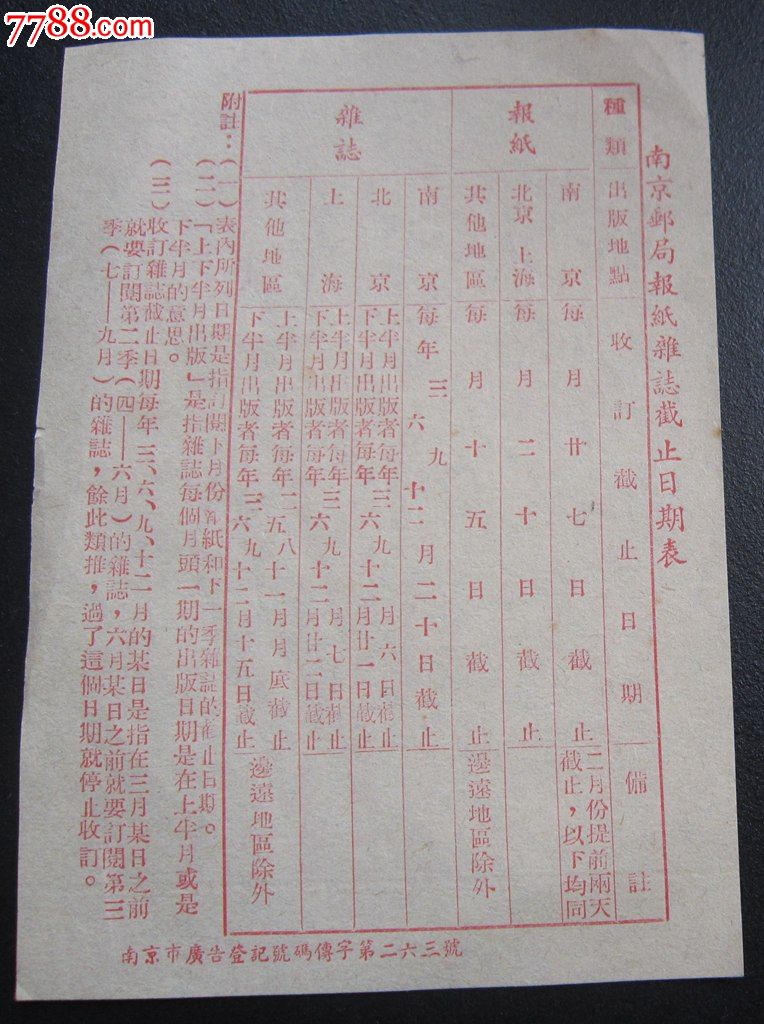 7788.com
南京郵局報紙雜誌截止日期表
種類 出版地點 收訂截止日期 備註
報紙
南京 每月廿七日截止 二月份提前兩天截止，以下均同
北京 上海 每月二十日截止
其他地區 每月十五日截止 邊遠地區除外
雜誌
南京 每年三六九十二月二十日截止
北京 上半月出版者每年三六九十二月六日截止
下半月出版者每年三六九十二月廿一日截止
上海 上半月出版者每年三六九十二月七日截止
下半月出版者每年三六九十二月廿二日截止
其他地區 上半月出版者每年二五八十一月月底截止 邊遠地區除外
下半月出版者每年三六九十二月十五日截止
附註：（一）表內所列日期是指訂閱下月份報紙和下一季雜誌的截止日期。
（二）「上下半月出版」是指雜誌每個月頭一期的出版日期是在上半月或是
下半月的意思。
（三）收訂雜誌截止日期每年三、六、九、十二月的某日是指在三月某日之前
就要訂閱第二季（四——六月）的雜誌，六月某日之前就要訂閱第三
季（七——九月）的雜誌，餘此類推，過了這個日期就停止收訂。
南京市廣告登記號碼傳字第二六三號